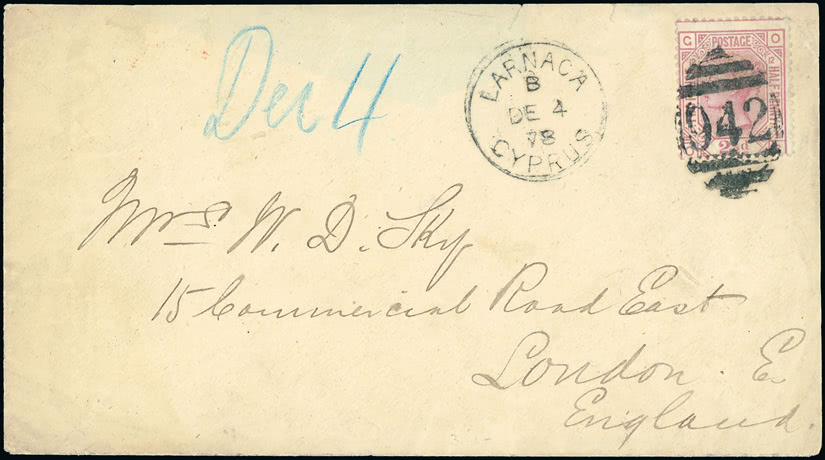 Dec 4
LARNACA
B
DE 4
78
CYPRUS
G POSTAGE O
12
HALFPENNY
942
2½d
Mrs W. D. Sky
15 Commercial Road East
London. E
England.